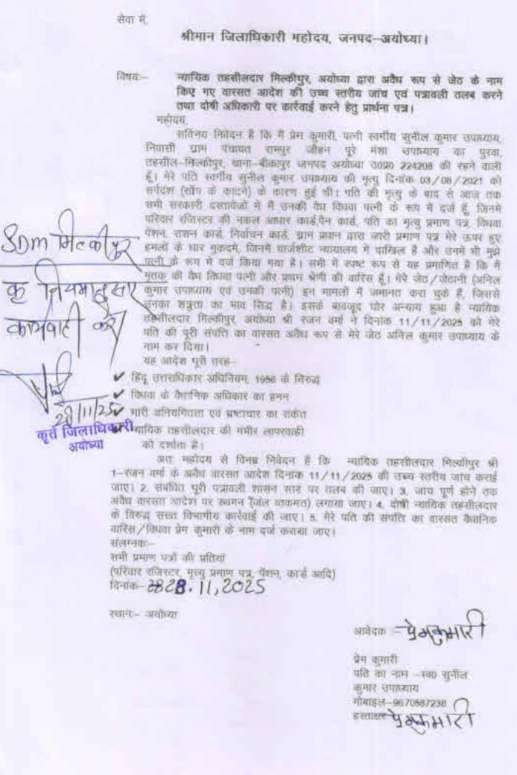 सेवा में,
श्रीमान जिलाधिकारी महोदय, जनपद–अयोध्या।
विषयः– न्यायिक तहसीलदार मिल्कीपुर, अयोध्या द्वारा अवैध रूप से जेठ के नाम
किए गए वारसत आदेश की उच्च स्तरीय जांच एवं पत्रावली तलब करने
तथा दोषी अधिकारी पर कार्रवाई करने हेतु प्रार्थना पत्र।
महोदय,
सविनय निवेदन है कि मैं प्रेम कुमारी, पत्नी स्वर्गीय सुनील कुमार उपाध्याय,
निवासी ग्राम पंचायत रामपुर जोहन पूरे मंशा उपाध्याय का पुरवा,
तहसील–मिल्कीपुर, थाना–बीकापुर जनपद अयोध्या उ0प्र0 224208 की रहने वाली
हूँ। मेरे पति स्वर्गीय सुनील कुमार उपाध्याय की मृत्यु दिनांक 03/08/2021 को
सर्पदंश (साँप के काटने) के कारण हुई थी। पति की मृत्यु के बाद से आज तक
सभी सरकारी दस्तावेजों में मैं उनकी वैध विधवा पत्नी के रूप में दर्ज हूँ, जिनमें
परिवार रजिस्टर की नकल आधार कार्ड,पैन कार्ड, पति का मृत्यु प्रमाण पत्र, विधवा
पेंशन, राशन कार्ड, निर्वाचन कार्ड, ग्राम प्रधान द्वारा जारी प्रमाण पत्र मेरे ऊपर हुए
हमलों के चार मुकदमे, जिनमें चार्जशीट न्यायालय में दाखिल है और उनमें भी मुझे
पत्नी के रूप में दर्ज किया गया है। सभी में स्पष्ट रूप से यह प्रमाणित है कि मैं
मृतक की वैध विधवा पत्नी और प्रथम श्रेणी की वारिस हूँ। मेरे जेठ/जेठानी (अनिल
कुमार उपाध्याय एवं उनकी पत्नी) इन मामलों में जमानत करा चुके हैं, जिससे
उनका शत्रुता का भाव सिद्ध है। इसके बावजूद घोर अन्याय हुआ है न्यायिक
तहसीलदार मिल्कीपुर, अयोध्या श्री रंजन वर्मा ने दिनांक 11/11/2025 को मेरे
पति की पूरी संपत्ति का वारसत अवैध रूप से मेरे जेठ अनिल कुमार उपाध्याय के
नाम कर दिया।
यह आदेश पूरी तरह–
हिंदू उत्तराधिकार अधिनियम, 1956 के विरुद्ध
विधवा के वैधानिक अधिकार का हनन
भारी अनियमितता एवं भ्रष्टाचार का संकेत
न्यायिक तहसीलदार की गंभीर लापरवाही
को दर्शाता है।
अतः महोदय से विनम्र निवेदन है कि न्यायिक तहसीलदार मिल्कीपुर श्री
1–रंजन वर्मा के अवैध वारसत आदेश दिनांक 11/11/2025 की उच्च स्तरीय जांच कराई
जाए। 2. संबंधित पूरी पत्रावली शासन स्तर पर तलब की जाए। 3. जांच पूर्ण होने तक
अवैध वारसत आदेश पर स्थगन लगाया जाए। 4. दोषी न्यायिक तहसीलदार
के विरुद्ध सख्त विभागीय कार्रवाई की जाए। 5. मेरे पति की संपत्ति का वारसत वैधानिक
वारिस/विधवा प्रेम कुमारी के नाम दर्ज कराया जाए।
संलग्नकः–
सभी प्रमाण पत्रों की प्रतियां
(परिवार रजिस्टर, मृत्यु प्रमाण पत्र, पेंशन, कार्ड आदि)
दिनांक– 28.11,2025
स्थानः– अयोध्या
SDM मिल्कीपुर
कृ नियमानुसार
कार्यवाही करें
28/11/25
कृते जिलाधिकारी
अयोध्या
आवेदक :– प्रेमकुमारी
प्रेम कुमारी
पति का नाम –स्व0 सुनील
कुमार उपाध्याय
मोबाइल–9670587238
हस्ताक्षर प्रेमकुमारी